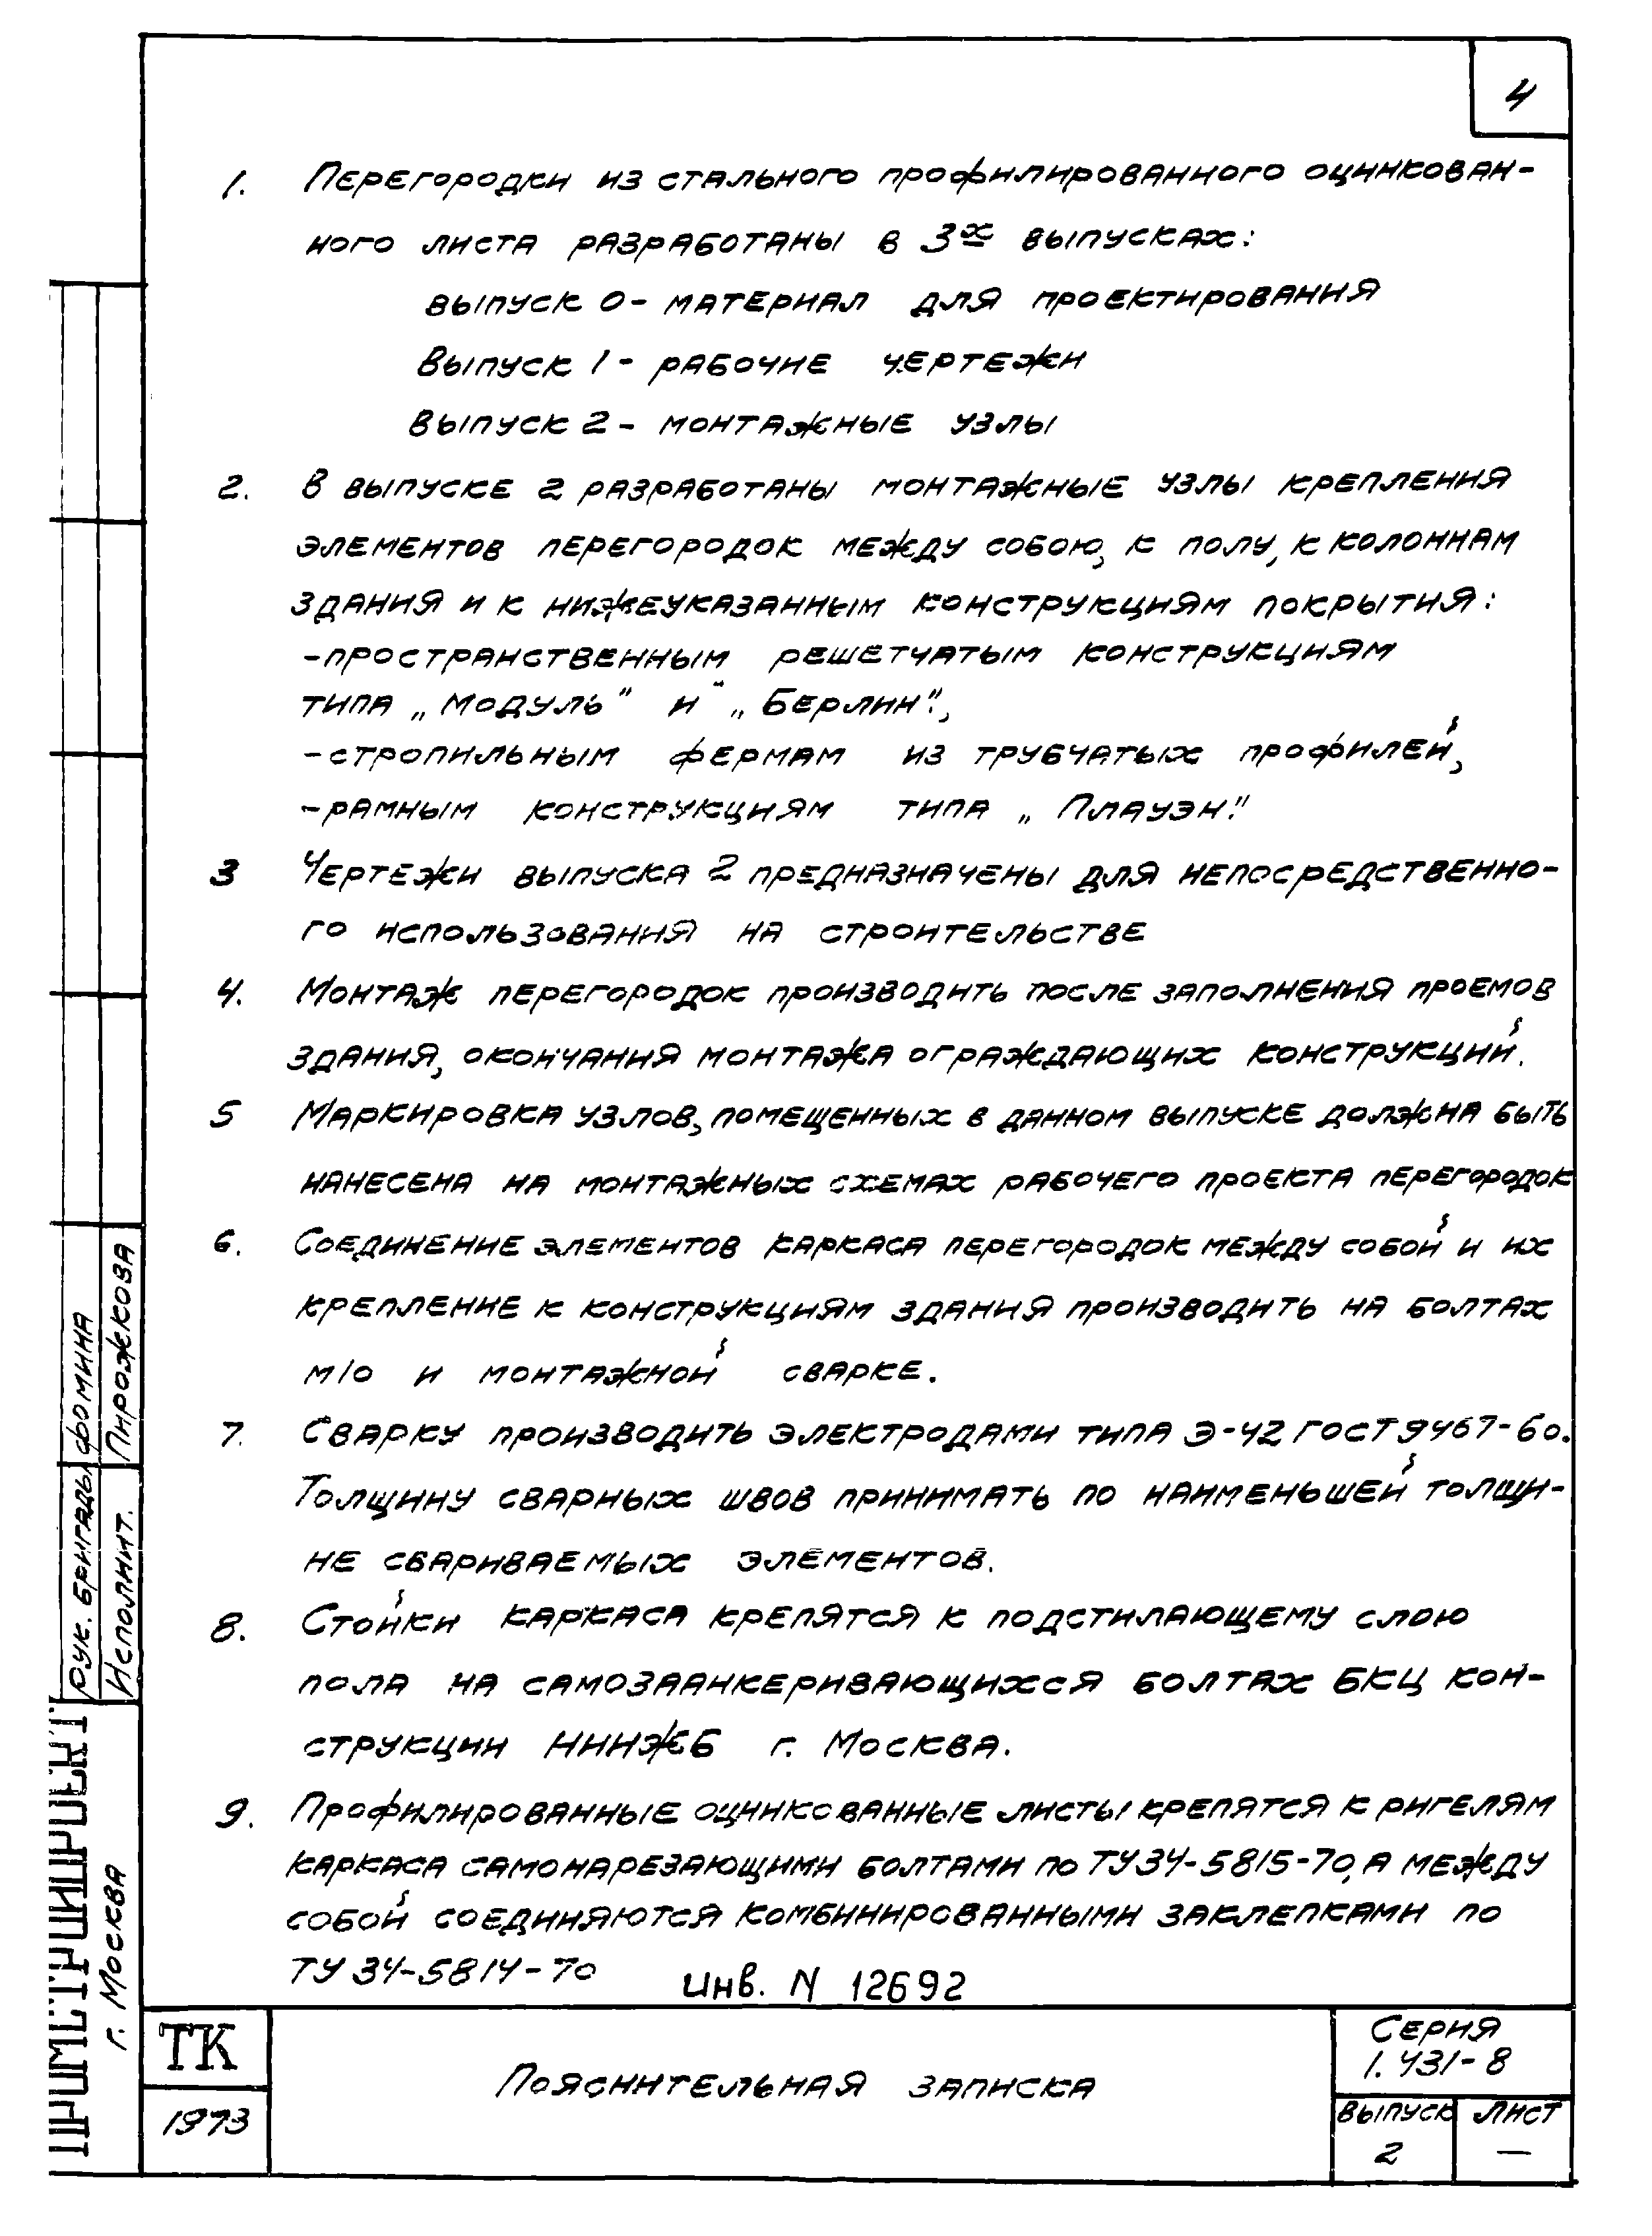 4
1. Перегородки из стального профилированного оцинкован-
ного листа разработаны в 3х выпусках:
выпуск 0 - материал для проектирования
Выпуск 1 - рабочие чертежи
Выпуск 2 - монтажные узлы
2. В выпуске 2 разработаны монтажные узлы крепления
элементов перегородок между собою, к полу, к колоннам
здания и к нижеуказанным конструкциям покрытия:
- пространственным решетчатым конструкциям
типа „Модуль" и „Берлин",
- стропильным фермам из трубчатых профилей,
- рамным конструкциям типа „Плауэн".
3 Чертежи выпуска 2 предназначены для непосредственно-
го использования на строительстве
4. Монтаж перегородок производить после заполнения проемов
здания, окончания монтажа ограждающих конструкций.
5 Маркировка узлов, помещенных в данном выпуске должна быть
нанесена на монтажных схемах рабочего проекта перегородок
6. Соединение элементов каркаса перегородок между собой и их
крепление к конструкциям здания производить на болтах
М10 и монтажной сварке.
7. Сварку производить электродами типа Э-42 ГОСТ 9467-60.
Толщину сварных швов принимать по наименьшей толщи-
не свариваемых элементов.
8. Стойки каркаса крепятся к подстилающему слою
пола на самозаанкеривающихся болтах БКЦ кон-
струкции НИИЖБ г. Москва.
9. Профилированные оцинкованные листы крепятся к ригелям
каркаса самонарезающими болтами по ТУ34-5815-70, а между
собой соединяются комбинированными заклепками по
ТУ 34-5814-70
Инв. N 12692
ТК
1973
Пояснительная записка
Серия
1.431-8
Выпуск
2
Лист
—
Рук. бригады Фомина
Исполнит. Пирожкова
г. Москва